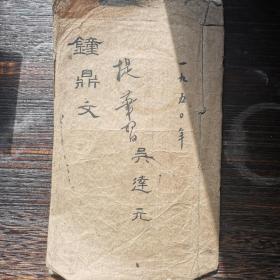 一九五〇年
提筆習吳達元
鐘鼎文